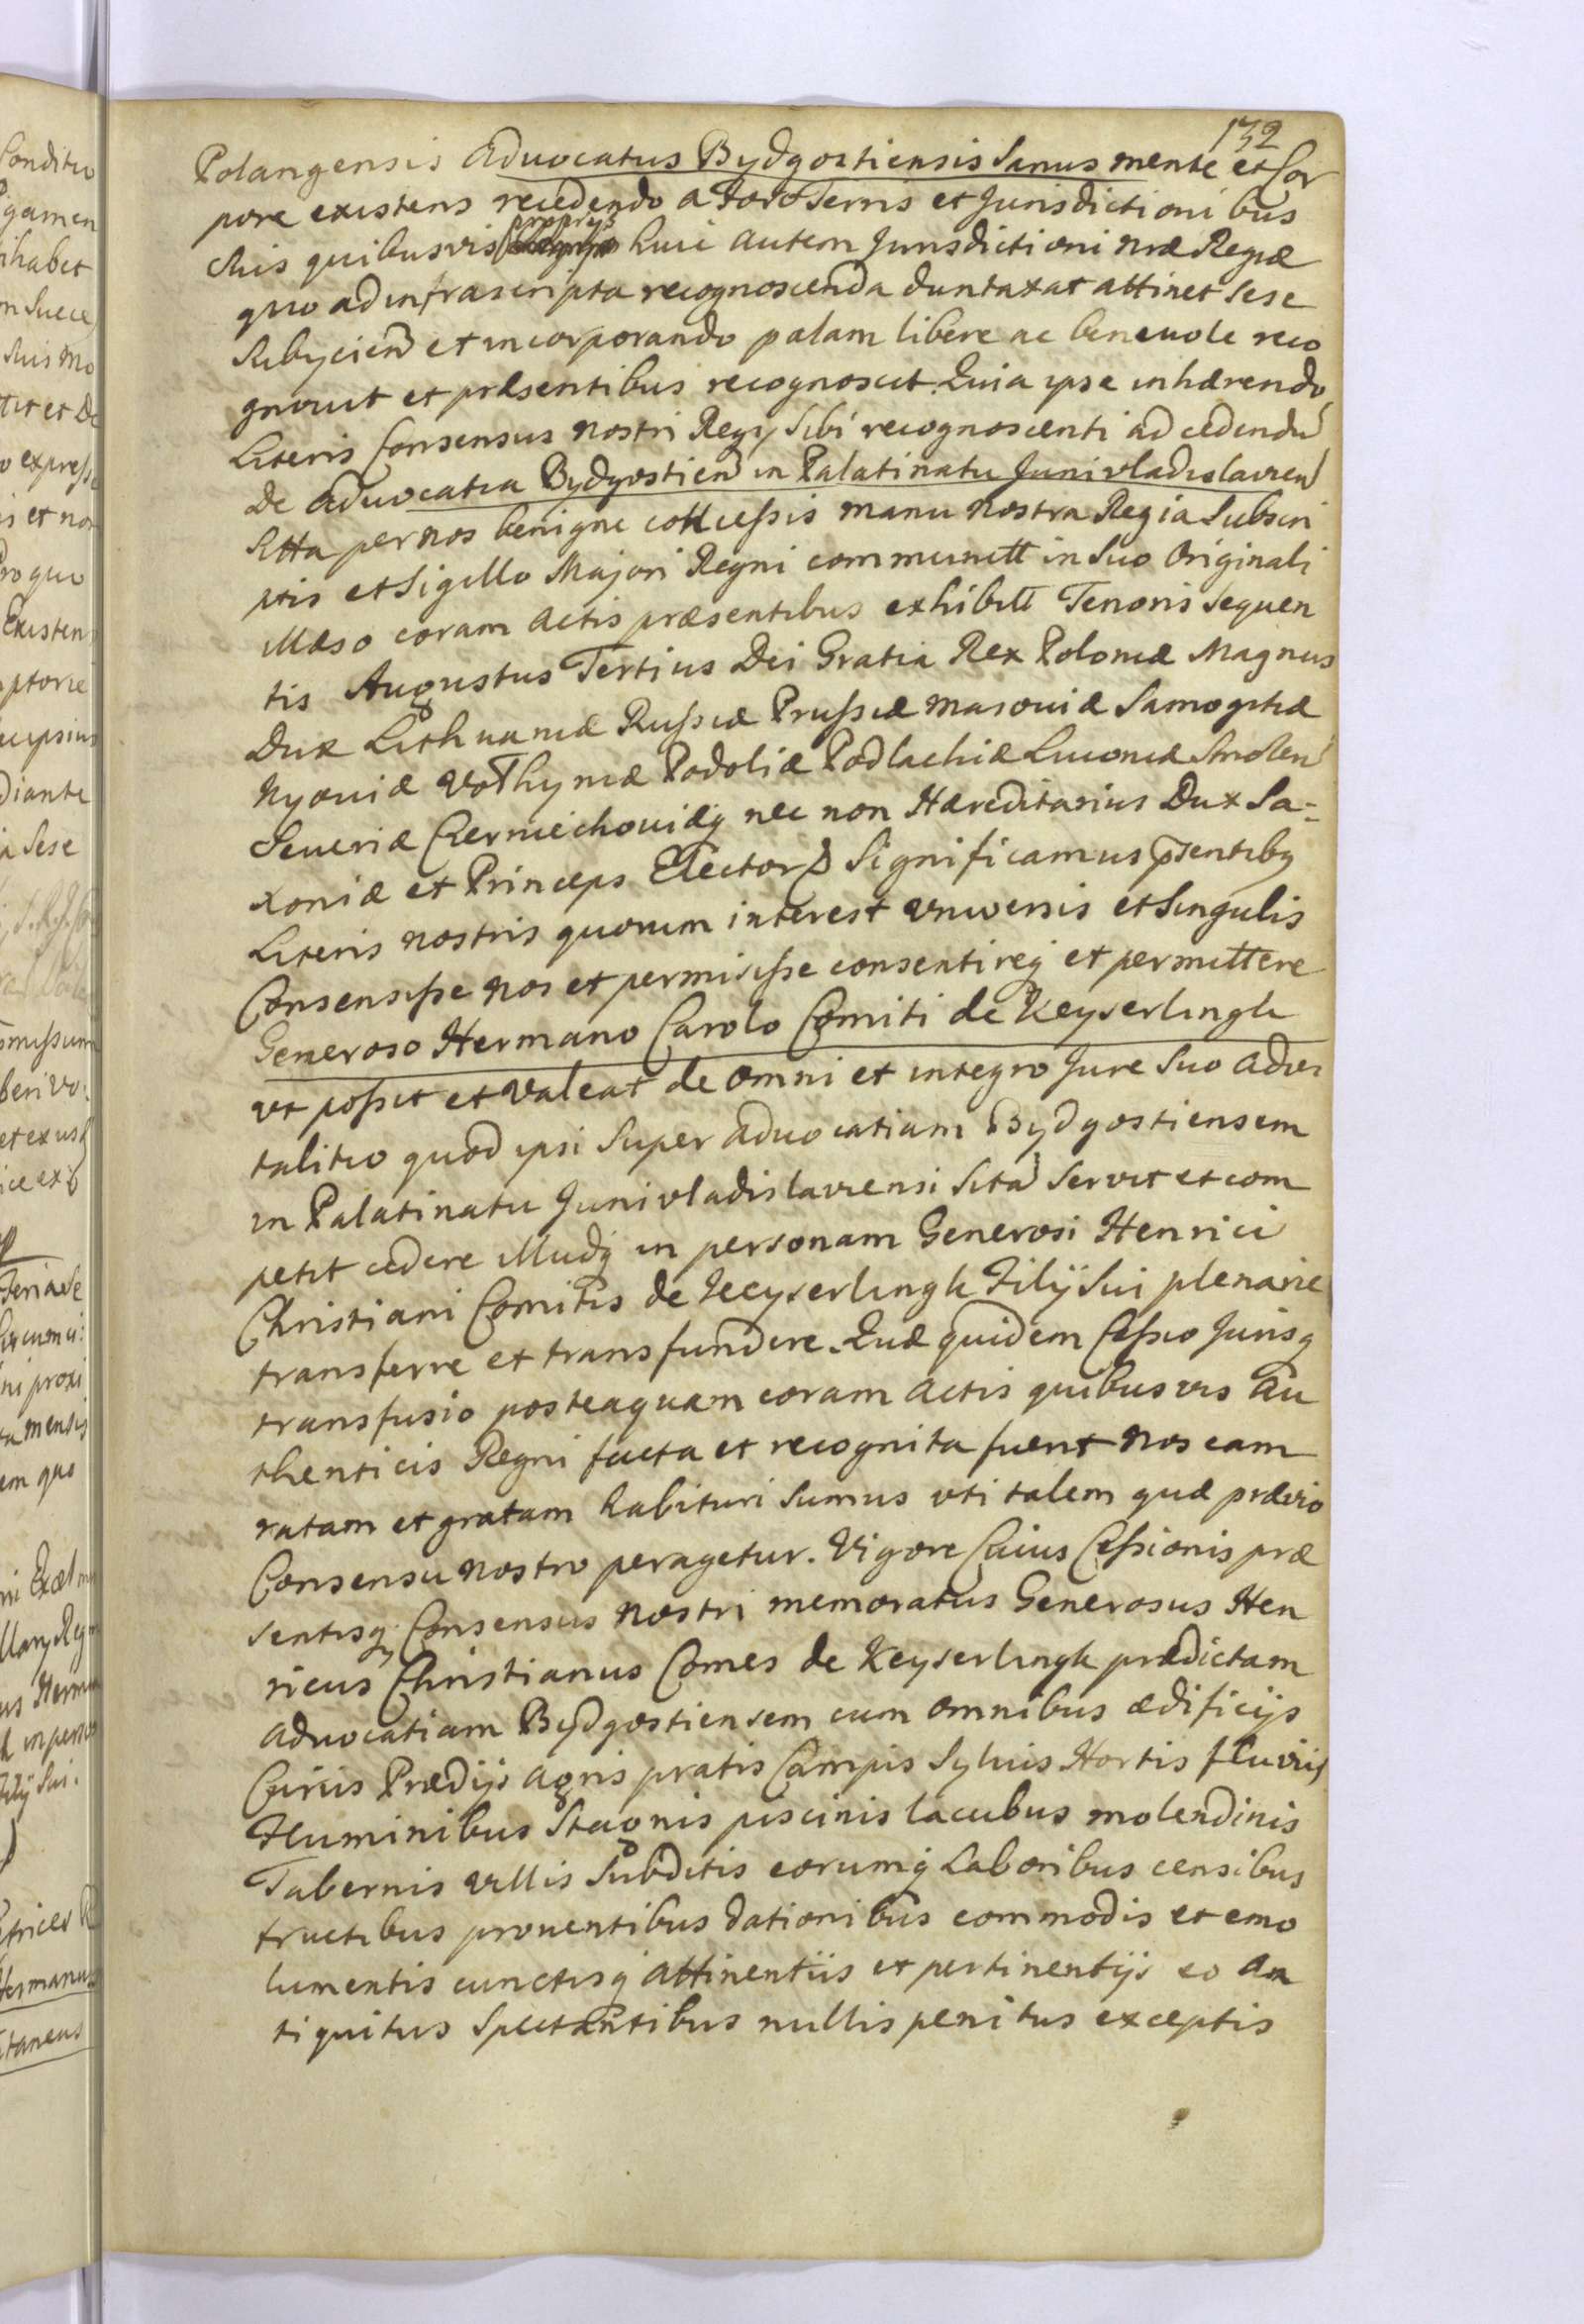 132
Polangensis Advocatus Bydgostiensis Sanus mente et Cor
pore existens recedendo a Foro Terris et Jurisdictioni bus
suis quibusvis proprijs huic autem Jurisdictioni nræ Regiæ
quo ad infrascripta recognoscenda duntaxat attinet sese
Subyciend et incorporando palam libere ac beneuole reco
gnouit et præsentibus recognoscit. Quia ipse inhærendo
Literis Consensus nostri Regy sibi recognoscenti ad cedendu
de Aduocatia Bydgostien in Palatinatu Junivladislavien
sitta per nos benigne concessis manu nostra Regia Subscri
ptis et Sigillo Majori Regni communitt in suo Originali
illæso coram Actis præsentibus exhibitt Tenoris sequen
tis Augustus Tertius Dei Gratia Rex Poloniæ Magnus
Dux Lithuaniæ Russiæ Prussiæ Masouiæ Samogitiæ
Kyouiæ Volhyniæ Podoliæ Podlachiæ Liuoniæ Smolen
Seueriæ Czerniechouiæq nec non Hæreditarius Dux Sa=
xoniæ et Princeps Elector Significamus psentibq
Literis nostris quorum interest vniversis et singulis
Consensisse nos et permisisse consentireq et permittere
Generoso Hermano Carolo Comiti de Keyserlingk
vt possit et valeat de omni et integro Jure suo advi
talitio quod ipsi super Aduocatiam Bydgostiensem
in Palatinatu Junivladislaviensi sitā servit et com
petit cedere illudq in personam Generosi Henrici
Christiani Comitis de Keyserlingk Filij sui plenarie
transferre et transfundere. Quæ quidem Cessio Jurisq
transfusio posteaquam coram Actis quibusvis Au
thenticis Regni facta et recognita fuerit nos eam
ratam et gratam habituri sumus vti talem quæ prævio
Consensu nostro peragetur. Vigore Cuius Cessionis præ
sentisq Consensus nostri memoratus Generosus Hen
ricus Christianus Comes de Keyserlingk prædictam
Aduocatiam Bydgostiensem cum omnibus ædificijs
Curiis Prædijs Agris pratis Campis Sylvis Hortis fluviis
Fluminibus Stagnis piscinis lacubus molendinis
Tabernis villis Subditis eorumq laboribus censibus
fructibus prouentibus dationibus commodis et emo
lumentis cunctisq attinentiis et pertinentijs eo an
tiquitus Spectantibus nullis penitus exceptis